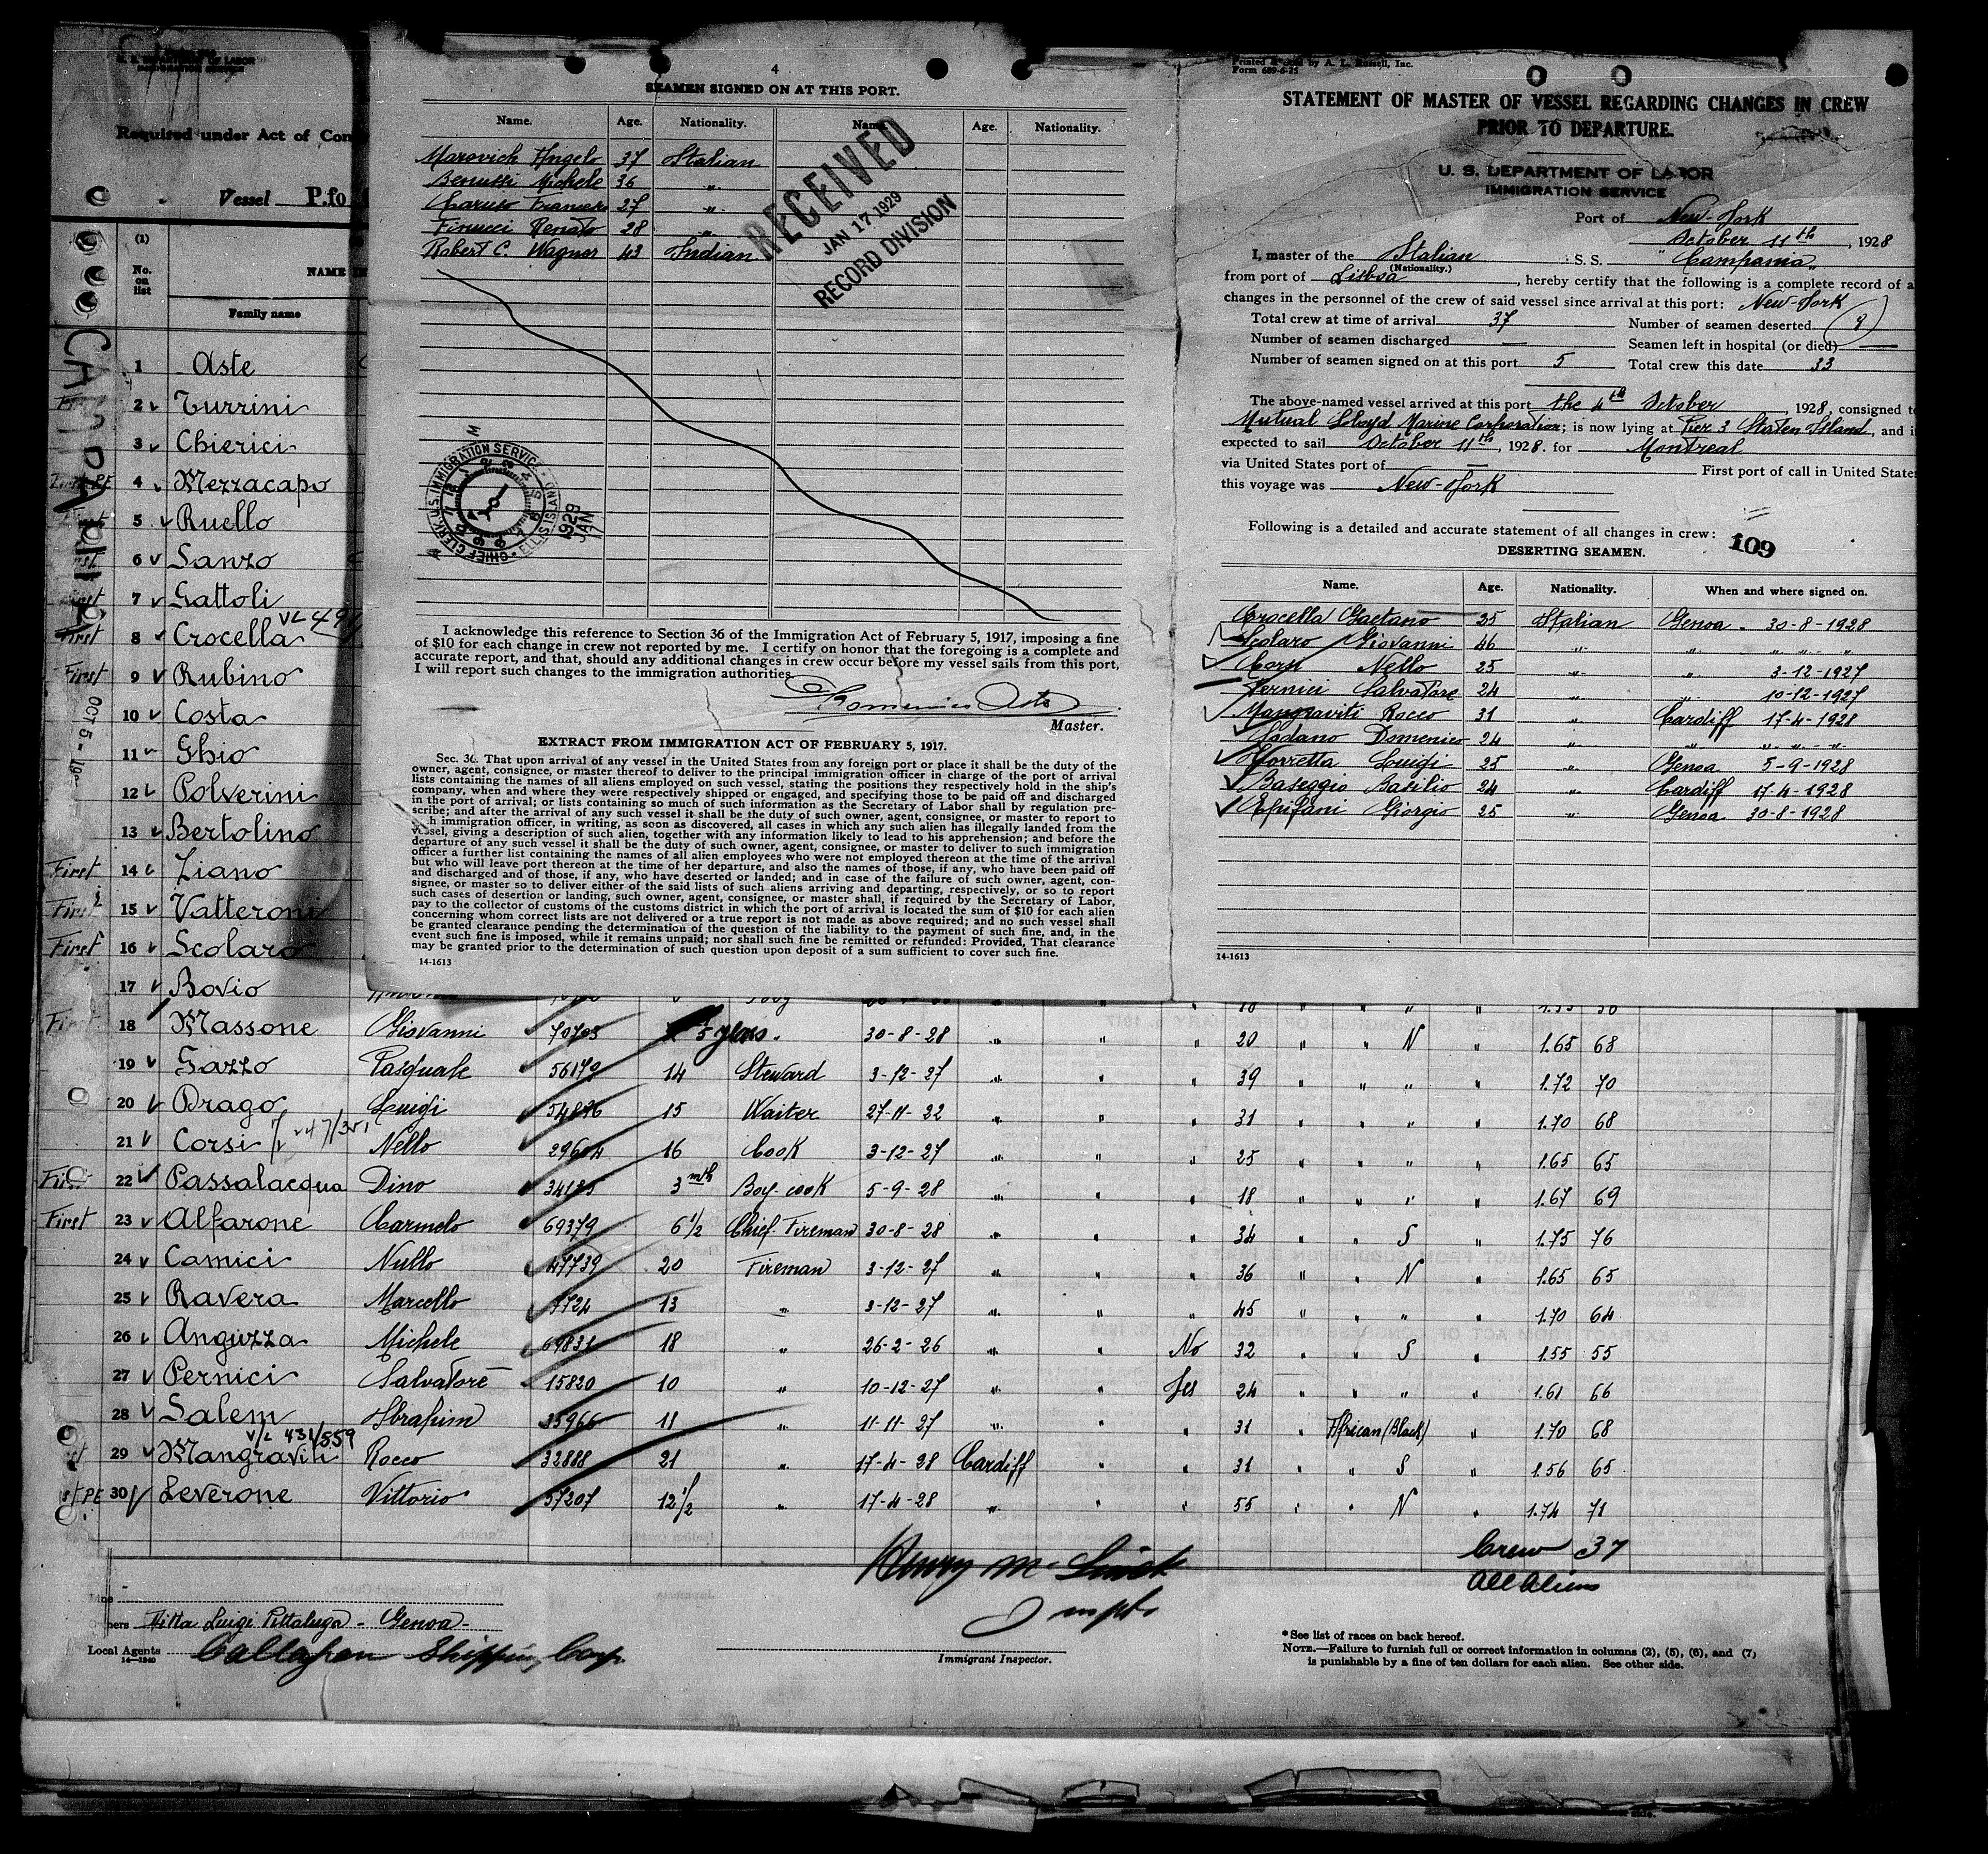 U. S. DEPARTMENT OF LABOR
IMMIGRATION SERVICE
Required under Act of Con
Vessel P.fo
(1)
No. on list
NAME IN
Family name
CAMPANIA
OCT 5 - 19
1 Aste
2 Turrini
3 Chierici
First PE 4 Mezzacapo
First 5 Ruello
First 6 Sanzo
First 7 Gattoli
First 8 Crocella
First 9 Rubino
10 Costa
11 Ghio
12 Polverini
13 Bertolino
First 14 Ziano
First 15 Vatteroni
First 16 Scolaro
17 Bovio
4
SEAMEN SIGNED ON AT THIS PORT.
Name. Age. Nationality. Name. Age. Nationality.
Marovich Angelo 37 Italian
Benussi Michele 36 "
Caruso 27 "
Finucci Renato 28 "
Robert C. Wagner 43 Indian
RECEIVED
JAN 17 1929
RECORD DIVISION
CHIEF CLERK U.S. IMMIGRATION SERVICE ELLIS ISLAND
1929
JAN
I acknowledge this reference to Section 36 of the Immigration Act of February 5, 1917, imposing a fine
of $10 for each change in crew not reported by me. I certify on honor that the foregoing is a complete and
accurate report, and that, should any additional changes in crew occur before my vessel sails from this port,
I will report such changes to the immigration authorities.
Master.
EXTRACT FROM IMMIGRATION ACT OF FEBRUARY 5, 1917.
Sec. 36. That upon arrival of any vessel in the United States from any foreign port or place it shall be the duty of the
owner, agent, consignee, or master thereof to deliver to the principal immigration officer in charge of the port of arrival
lists containing the names of all aliens employed on such vessel, stating the positions they respectively hold in the ship's
company, when and where they were respectively shipped or engaged, and specifying those to be paid off and discharged
in the port of arrival; or lists containing so much of such information as the Secretary of Labor shall by regulation pre-
scribe; and after the arrival of any such vessel it shall be the duty of such owner, agent, consignee, or master to report to
such immigration officer, in writing, as soon as discovered, all cases in which any such alien has illegally landed from the
vessel, giving a description of such alien, together with any information likely to lead to his apprehension; and before the
departure of any such vessel it shall be the duty of such owner, agent, consignee, or master to deliver to such immigration
officer a further list containing the names of all alien employees who were not employed thereon at the time of the arrival
but who will leave port thereon at the time of her departure, and also the names of those, if any, who have been paid off
and discharged and of those, if any, who have deserted or landed; and in case of the failure of such owner, agent, con-
signee, or master so to deliver either of the said lists of such aliens arriving and departing, respectively, or so to report
such cases of desertion or landing, such owner, agent, consignee, or master shall, if required by the Secretary of Labor,
pay to the collector of customs of the customs district in which the port of arrival is located the sum of $10 for each alien
concerning whom correct lists are not delivered or a true report is not made as above required; and no such vessel shall
be granted clearance pending the determination of the question of the liability to the payment of such fine, and, in the
event such fine is imposed, while it remains unpaid; nor shall such fine be remitted or refunded: Provided, That clearance
may be granted prior to the determination of such question upon deposit of a sum sufficient to cover such fine.
14-1613
Printed & sold by A. L. Russell, Inc.
Form 689-6-25
STATEMENT OF MASTER OF VESSEL REGARDING CHANGES IN CREW
PRIOR TO DEPARTURE.
U. S. DEPARTMENT OF LABOR
IMMIGRATION SERVICE
Port of New-York
October 11th, 1928
I, master of the Italian S.S. "Campania"
(Nationality.)
from port of Lisboa, hereby certify that the following is a complete record of a
changes in the personnel of the crew of said vessel since arrival at this port: New-York
Total crew at time of arrival 37 Number of seamen deserted (9)
Number of seamen discharged — Seamen left in hospital (or died) —
Number of seamen signed on at this port 5 Total crew this date 33
The above-named vessel arrived at this port the 4th October, 1928, consigned to
Mutual Lloyd Marine Corporation; is now lying at Pier 3 Staten Island, and i
expected to sail October 11th, 1928. for Montreal
via United States port of — First port of call in United State
this voyage was New-York
Following is a detailed and accurate statement of all changes in crew: 109
DESERTING SEAMEN.
Name. Age. Nationality. When and where signed on.
Crocella Gaetano 35 Italian Genoa - 30-8-1928
Scolaro Giovanni 46 " " " " "
Corsi Nello 25 " " 3-12-1927
Pernici Salvatore 24 " " 10-12-1927
Mangraviti Rocco 31 " Cardiff 17-4-1928
Sodano Domenico 24 " " " " "
Luigi 25 " Genoa 5-9-1928
Baseggio Basilio 24 " Cardiff 17-4-1928
Epifani Giorgio 25 Genoa 30-8-1928
14-1613
First 18 Massone Giovanni 70703 5 years. 30-8-28 " " " 20 " " N " 1.65 68
19 Gazzo Pasquale 56179 14 Steward 3-12-27 " " " 39 " " " " 1.72 70
20 Drago Luigi 54876 15 Waiter 27-11-22 " " " 31 " " " " 1.70 68
21 Corsi Nello 29604 16 Cook 3-12-27 " " " 25 " " " " 1.65 65
First 22 Passalacqua Dino 34185 3 mth Boy-cook 5-9-28 " " " 18 " " " " 1.67 69
First 23 Alfarone Carmelo 69379 6 1/2 Chief Fireman 30-8-28 " " 34 " " S " 1.75 76
24 Camici Nullo 47739 20 Fireman 3-12-27 " " " 36 " " N " 1.65 65
25 Ravera Marcello 13 " 3-12-27 " " " 45 " " " " 1.70 64
26 Anguzza Michele 69831 18 " 26-2-26 " " No 32 " " S " 1.55 55
27 Pernici Salvatore 15820 10 " 10-12-27 " " Yes 24 " " " " 1.61 66
28 Salem Ibrahim 35966 11 " 11-11-27 " " 31 " African (Black) " 1.70 68
v/c 431/559
29 Mangraviti Rocco 32888 21 " 17-4-28 Cardiff " " 31 " " S " 1.56 65
PE 30 Leverone Vittorio 57207 12 1/2 " 17-4-28 " " " 55 " " N " 1.74 71
Crew 37
All Aliens
Ditta Luigi Pittaluga - Genoa -
Local Agents Callaghan Shipping Corp.
14-1240
Immigrant Inspector.
* See list of races on back hereof.
NOTE.—Failure to furnish full or correct information in columns (2), (5), (6), and (7)
is punishable by a fine of ten dollars for each alien. See other side.